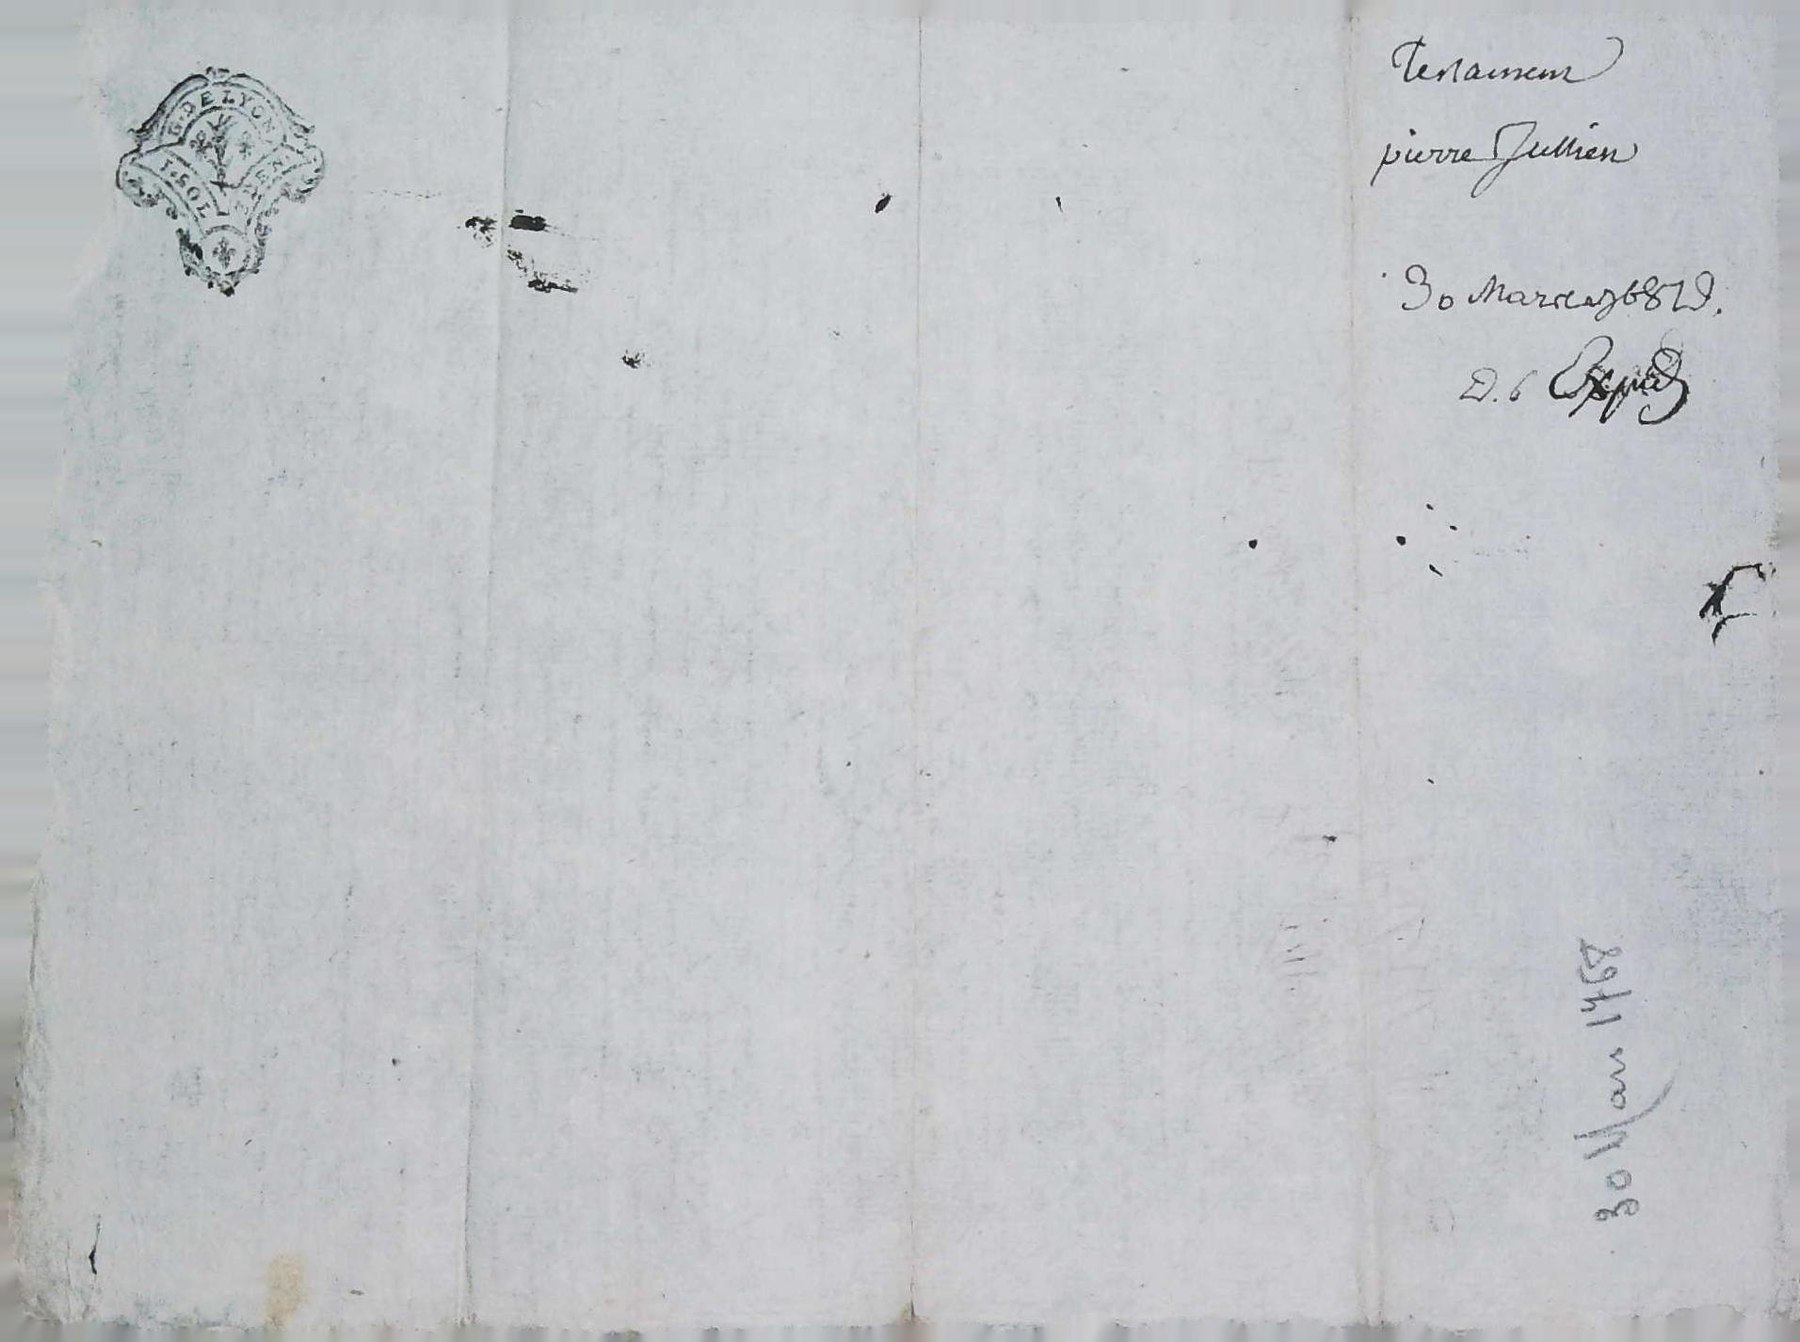 G. DE LYON
I. SOL
Testament
pierre Jullien
30 Mars
D. 6 Exped
30 Mars 1768